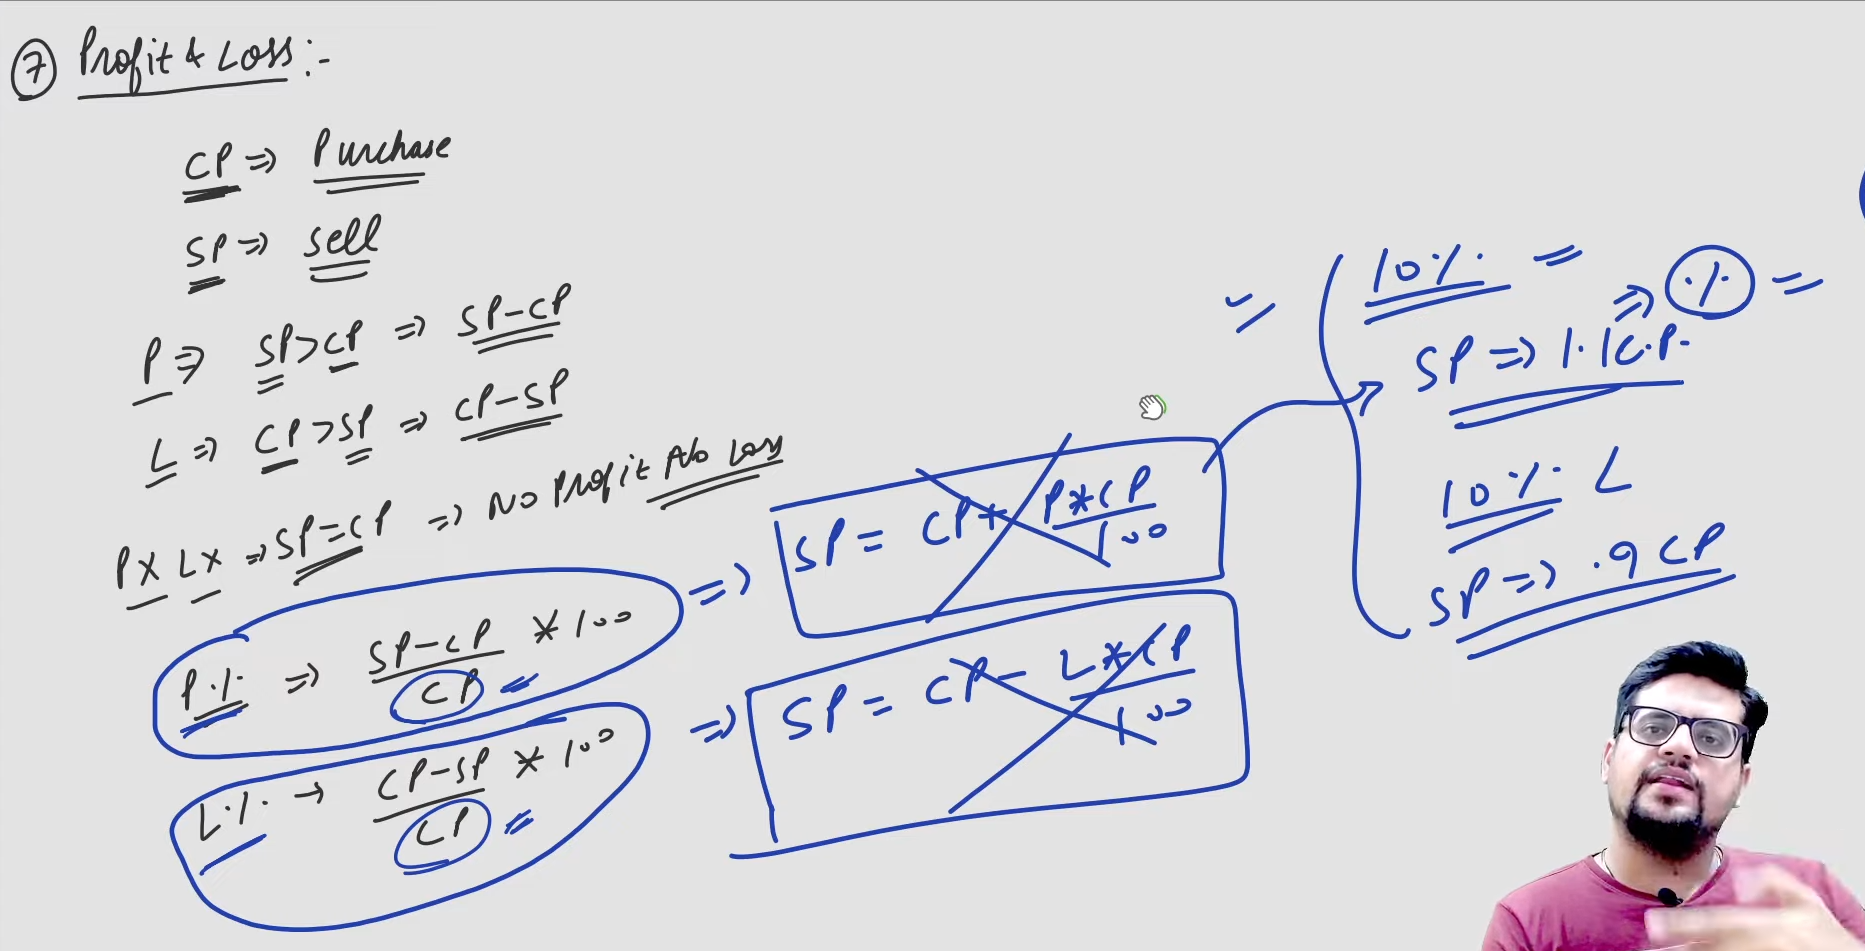 ⑦ Profit & Loss:-
CP => Purchase
SP => Sell
P => SP>CP => SP-CP
L => CP>SP => CP-SP
PX LX => SP=CP => No Profit No Loss
P.% => SP-CP/CP * 100
L.% → CP-SP/CP * 100
=> SP = CP + P*CP/100
=> SP = CP - L*CP/100
10% =
=> % =
SP => 1.1 C.P.
10% L
SP => .9 CP